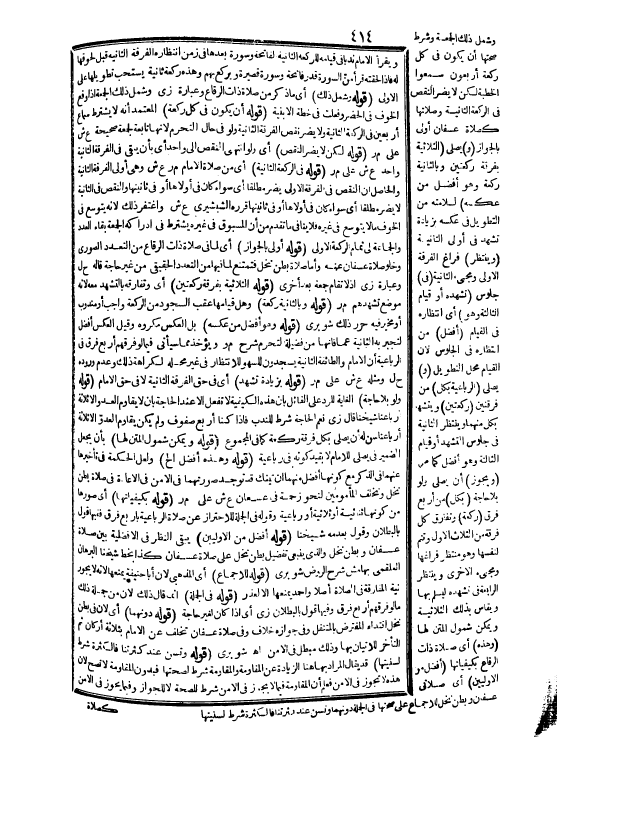 ٤١٤
ويقرأ الامام ندبا في قيامه للركعة الثانية الفاتحة وسورة بعدها في زمن انتظاره الفرقة الثانية قبل لحوقها
له فاذا لحقته قرأ من السورة قدر فاتحة وسورة قصيرة وركع بهم وهذه ركعة ثانية يستحب تطويلها على
الاولى (قوله وشمل ذلك) أى ماذكر من صلاة ذات الرقاع وعبارة زى وشمل ذلك الجمعة فاذا وقع
الخوف في الحضر وفعلت في خطة الابنية (قوله أن يكون في كل ركعة) المعتمد أنه لا يشترط سماع
أربعين في الركعة الثانية ولا يضر نقص الفرقة الثانية ولو في حال التحرم لانها تابعة لجمعة صحيحة ع ش
على م ر (قوله لكن لا يضر النقص) أى ولو انتهى النقص الى واحد أى بأن يبقى في الفرقة الثانية
واحد ع ش على م ر (قوله في الركعة الثانية) أى من صلاة الامام م ر ع ش وهى أولى الفرقة الثانية
والحاصل ان النقص في الفرقة الاولى يضر مطلقا أى سواء كان في أولاها أو في ثانيتها والنقص في الثانية
لا يضر مطلقا أى سواء كان في أولاها أو في ثانيتها قرره الشبشيرى ع ش واغتفر ذلك لانه يتوسع في
الخوف مالا يتوسع في غيره فلا ينافي ماتقدم من أن المسبوق في غيره يشترط في ادراكه الجمعة بقاء العدد
والجماعة في تمام الركعة الاولى (قوله أولى بالجواز) أى لما في صلاة ذات الرقاع من التعدد الصورى
وخلو صلاة عسفان عنه وأما صلاة بطن نخل فتمتنع لما فيها من التعدد الحقيقى من غير حاجة قاله ح ل
وعبارة زى اذلا تقام جمعة بعد أخرى (قوله الثلاثية بفرقة ركعتين) أى وتفارقه بالتشهد معه لانه
موضع تشهدهم م ر (قوله وبالثانية ركعة) وهل قيامها عقب السجود من الركعة واجب أو مندوب
أو مخير فيه حرر ذلك شوبرى (قوله وهو أفضل من عكسه) بل العكس مكروه وقيل العكس أفضل
لتنجبر به الثانية عما فاتها من فضيلة التحرم شرح م ر ويؤخذ مما سيأتى فيما لو فرقهم أربع فرق في
الرباعية أن الامام والطائفة الثانية يسجدون للسهو للانتظار في غير محله لكراهة ذلك وعدم وروده
ح ل ومثله ع ش على م ر (قوله بزيادة تشهد) أى في حق الفرقة الثانية لا في حق الامام (قوله
ولو بلا حاجة) الغاية للرد على القائل بان هذه الكيفية لا تفعل الا عند الحاجة بان لا يقاوم العدو الا ثلاثة
أرباعنا شيخنا قال زى فعم الحاجة شرط للندب فاذا كنا أربع صفوف ولم يكن يقاوم العدو الا ثلاثة
أرباعنا سن له أن يصلى بكل فرقة ركعة كما في المجموع (قوله ويمكن شمول المتن لها) بأن يجعل
الضمير في يصلى للامام لا بقيد كونه في رباعية (قوله وهذه أفضل الخ) ولعل الحكمة في تأخيرها
عنهما في الذكر مع كونها أفضل منهما ان تينك قد توجد صورتهما في الامن في الاعادة في صلاة بطن
نخل وتخلف المأمومين لنحو زحمة في عسفان ع ش على م ر (قوله بكيفياتها) أى صورها
من كونها ثنائية أو ثلاثية أو رباعية وقوله في الجملة للاحتراز عن صلاة الرباعية بأربع فرق ففيها قول
بالبطلان وقول بعدمه شيخنا (قوله أفضل من الاوليين) يبقى النظر في الافضلية بين صلاة
عسفان وبطن نخل والذى ينبغى تفضيل بطن نخل على صلاة عسفان كذا بخط شيخنا البرهان
العلقمى بهامش شرح الروض شوبرى (قوله للاجماع) أى المذهبى لان أبا حنيفة يمنعها لانه لا يجوز
نية المفارقة في الصلاة أصلا وأحد يمنعها الا لعذر (قوله في الجملة) انما قال ذلك لان من جملة ذلك
مالو فرقهم أربع فرق وفيها قول بالبطلان زى أى اذا كان لغير حاجة (قوله دونهما) أى لان في بطن
نخل اقتداء المفترض بالمتنفل وفي جوازه خلاف وفي صلاة عسفان تخلف عن الامام بثلاثة أركان ثم
التأخر للاتيان بها وذلك مبطل في الامن اه شوبرى (قوله وتسن عند كثرتنا فالكثرة شرط
لسنيتها) قد يقال المراد بها هنا الزيادة عن المقاومة والمقاومة شرط لصحتها فبدون المقاومة لا تصح لان
هذه لا يجوز في الامن فعلم أن المقاومة فيما لا يجوز في الامن شرط للصحة لا للجواز وفيما يجوز في الامن
كصلاة
وشمل ذلك الجمعة وشرط
صحتها أن يكون في كل
ركعة أربعون سمعوا
الخطبة لكن لا يضر النقص
في الركعة الثانية وصلاتها
كصلاة عسفان أولى
بالجواز (و) يصلى (الثلاثية
بفرقة ركعتين وبالثانية
ركعة وهو أفضل من
عكسه) لسلامته من
التطويل في عكسه بزيادة
تشهد في أولى الثانية
(وينتظر) فراغ الفرقة
الاولى ومجىء الثانية (في)
جلوس (تشهده أو قيام
الثالثة وهو) أى انتظاره
في القيام (أفضل) من
انتظاره في الجلوس لان
القيام محل التطويل (و)
يصلى (الرباعية بكل) من
فرقتين (ركعتين) ويتشهد
بكل منهما وينتظر الثانية
في جلوس التشهد أو قيام
الثالثة وهو أفضل كما مر
(ويجوز) أن يصلى ولو
بلا حاجة (بكل) من أربع
فرق (ركعة) وتفارق كل
فرقة من الثلاث الاول وتتم
لنفسها وهو منتظر فراغها
ومجىء الاخرى وينتظر
الرابعة في تشهده ليسلم بها
ويقاس بذلك الثلاثية
ويمكن شمول المتن لها
(وهذه) أى صلاة ذات
الرقاع بكيفياتها (أفضل من
الاوليين) أى صلاتى
عسفان وبطن نخل للاجماع على صحتها في الجملة دونهما وتسن عند كثرتنا فالكثرة شرط لسنيتها